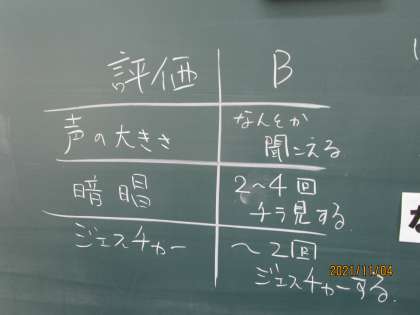 評価 B
声の大きさ なんとか
聞こえる
暗唱 2〜4回
チラ見する.
ジェスチャー 〜2回
ジェスチャーする.
2021/11/04